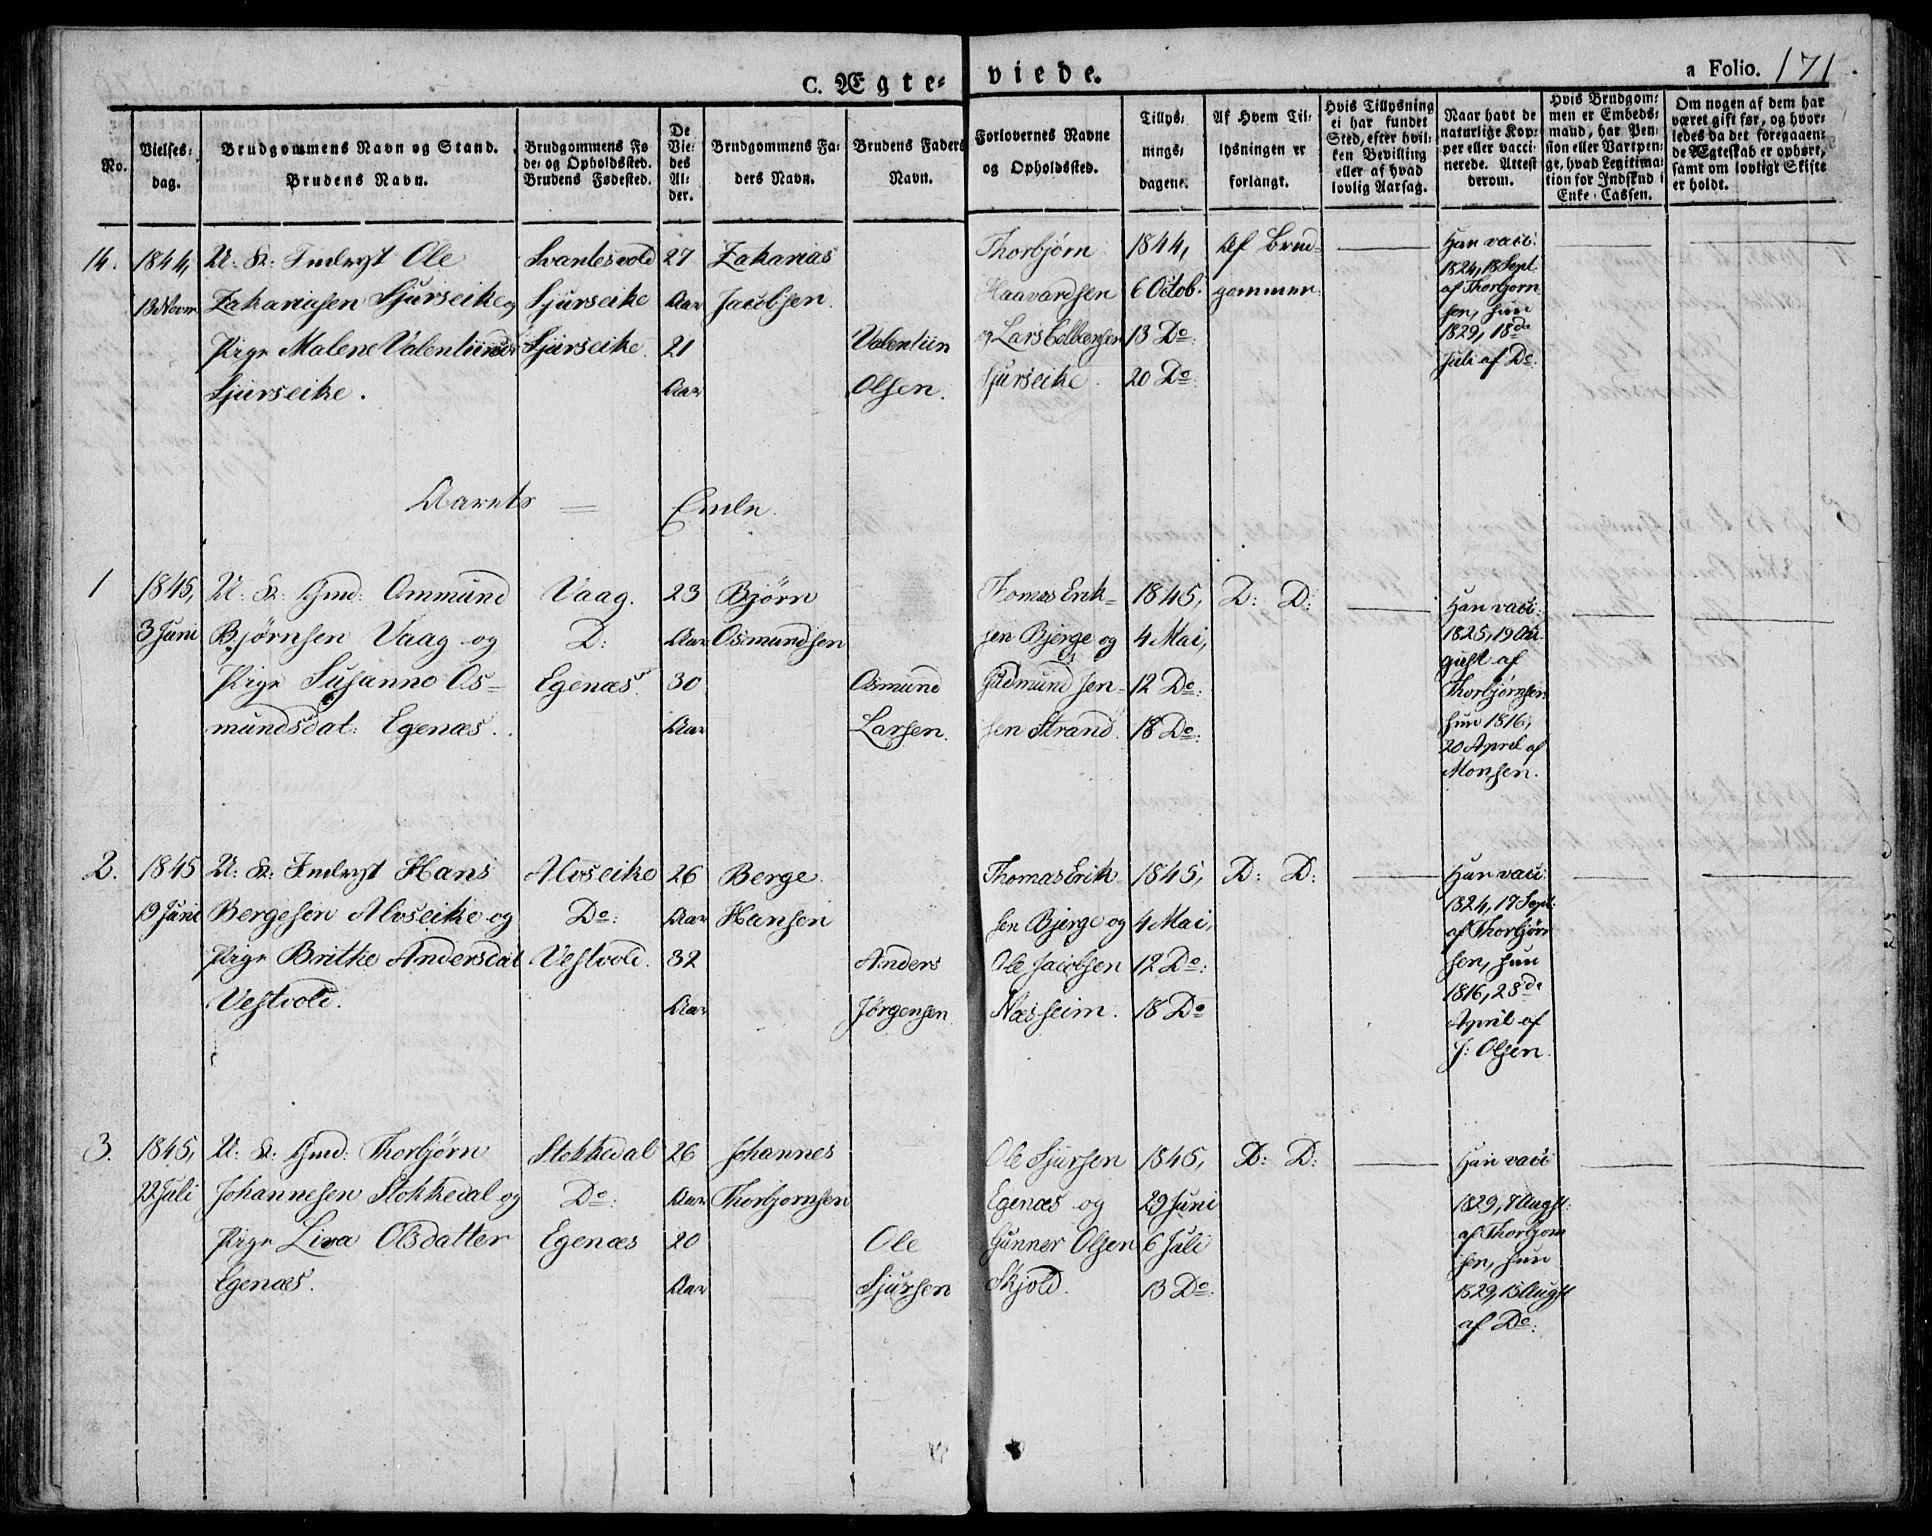 C. Ægte-viede.
a Folio. 171.
No.
Vielses-
dag.
Brudgommens Navn og Stand.
Brudens Navn.
Brudgommens Fø-
de- og Opholdssted.
Brudens Fødested.
De
Vie-
des
Al-
der.
Brudgommens Fa-
ders Navn.
Brudens Faders
Navn.
Forlovernes Navne
og Opholdssted.
Tillys-
nings-
dagene.
Af Hvem Til-
lysningen er
forlangt.
Hvis Tillysning
ei har fundet
Sted, efter hvil-
ken Bevilling
eller af hvad
lovlig Aarsag.
Naar havt de
naturlige Kop-
per eller vacci-
nerede. Attest
derom.
Hvis Brudgom-
men er Embeds-
mand, har Pen-
sion eller Vartpen-
ge, hvad Legitima-
tion for Indskud i
Enke-Cassen.
Om nogen af dem har
været gift før, og hvor-
ledes da det foregaaen-
de Ægteskab er ophørt,
samt om lovligt Skifte
er holdt.
14.
1844,
13 Novm
U: K: Inderst Ole
Zakariasen Sjurseike og
Pige Malene Valentinsdr
Sjurseike.
Svantesvold
Sjurseike
Sjurseike.
27
Aar
21
Aar
Zakarias
Jacobsen.
Valentin
Olsen.
Thorbjørn
Haavardsen
og Lars Colbensen
Sjurseike.
1844,
6 Octob.
13 Do:
20 Do:
Af Brud-
gommen.
Han vacc:
1824, 18 Sept.
af Thorbjørn
sen, hun
1829, 18de
Juli af Do.
Aarets = Ende.
1
1845,
3 Juni
U: K: Gmd: Ommund
Bjørnsen Vaag og
Pige Susanne Os-
mundsdat: Egenæs.
Vaag.
D:
Egenæs.
23
Aar
30
Aar
Bjørn
Osmundsen
Osmund
Larsen.
Thomas Erik-
sen Bjerge og
Gudmund Jen-
sen Strand.
1845,
4 Mai,
12 Do:
18 Do:
D: D:
Han vacc:
1825, 19 Au-
gust af
Thorbjørnsen
hun 1816,
20 April af
Monsen.
2.
1845
19 Juni
U: K: Inderst Hans
Bergesen Alvseike og
Pige Britke Andersdat
Vestvold.
Alvseike
Do:
Vestvold.
26
Aar
32
Aar
Berge
Hansen
Anders
Jørgensen
Thomas Erik-
sen Bjerge og
Ole Jacobsen
Næsheim.
1845,
4 Mai,
12 Do:
18 Do
D: D:
Han vacc:
1824, 17 Sept.
af Thorbjørn
sen, hun
1816, 28de
April af
J: Olsen.
3.
1845,
22 Juli
U: K: Gmd: Thorbjørn
Johannesen Stokkedal og
Pige Liva Olsdatter
Egenæs.
Stokkedal
Do:
Egenæs
26
Aar
20
Aar
Johannes
Thorbjørnsen
Ole
Sjursen
Ole Sjursen
Egenæs og
Gunner Olsen
Skjold.
1845,
29 Juni
6 Juli
13 Do:
D: D:
Han vacc
1829, 7 Augst.
af Thorbjørn
sen, hun
1829, 15 Augst
af Do: